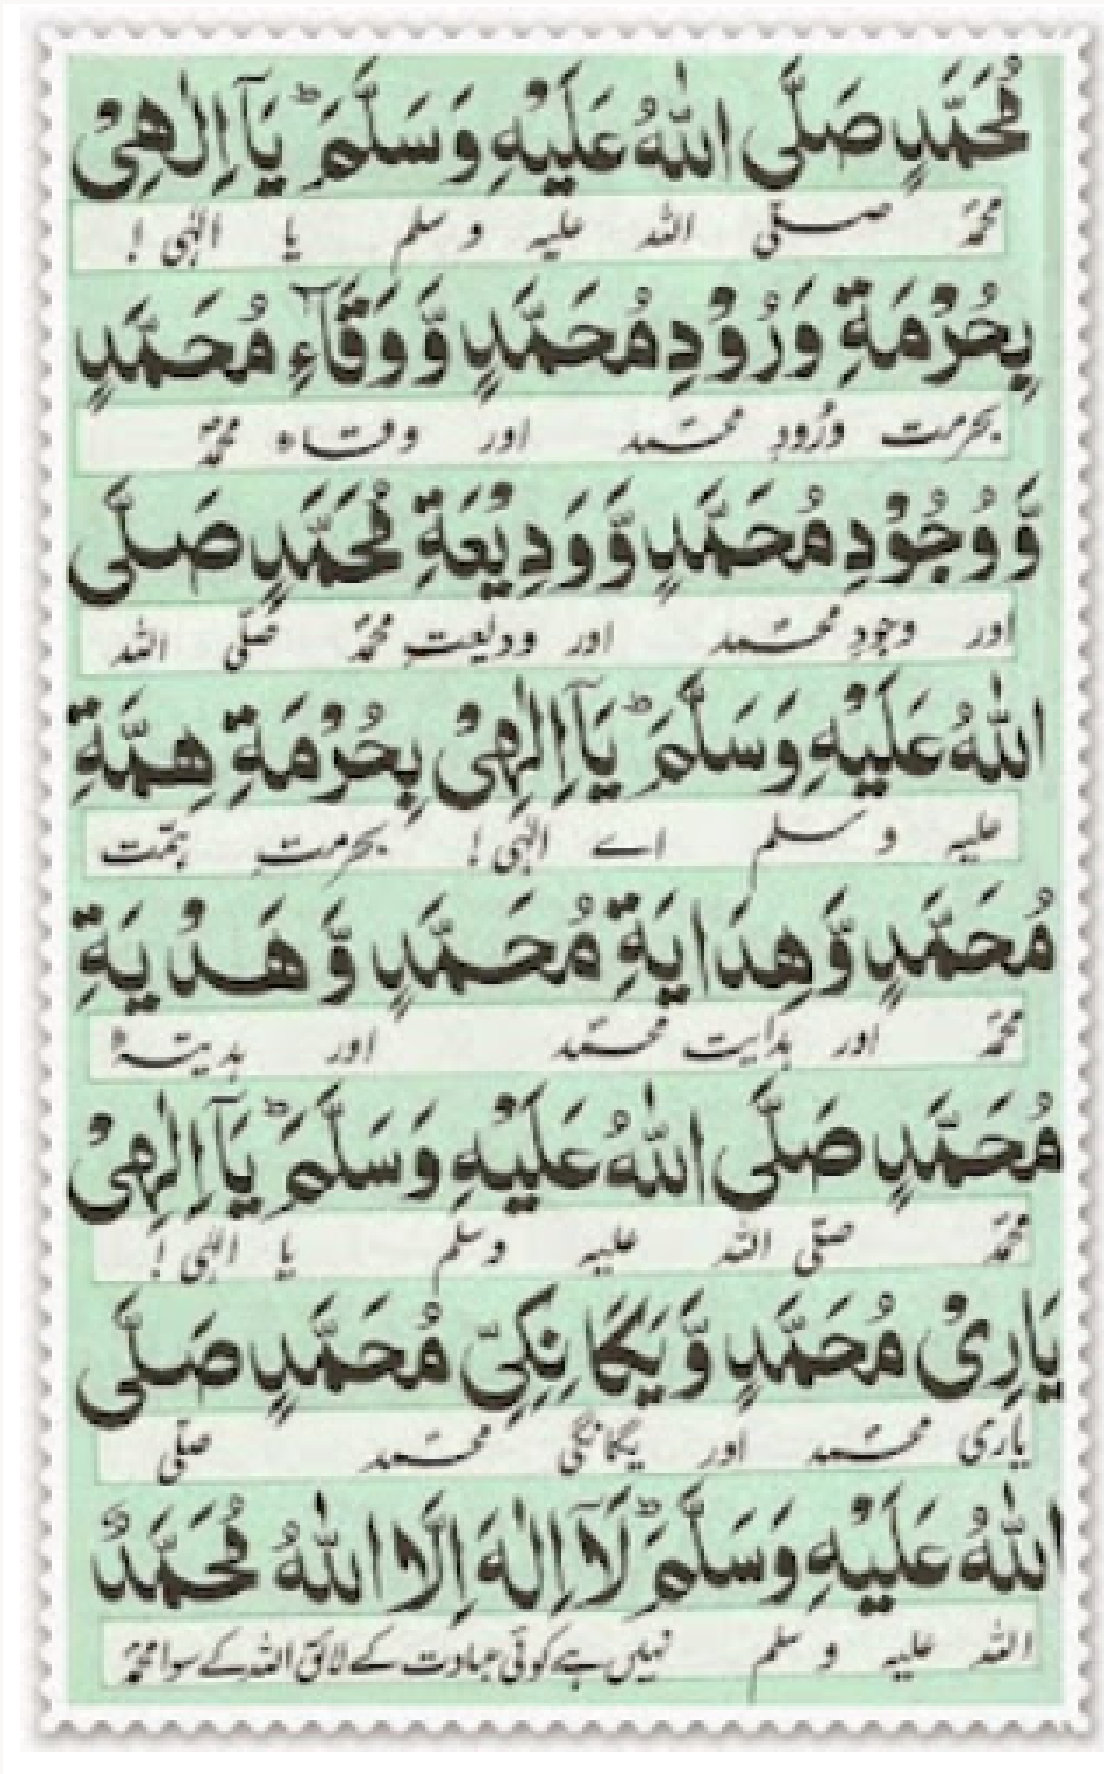 مُحَمَّدٍ صَلَّی اللّٰهُ عَلَیْهِ وَسَلَّمَ ؕ یَآ اِلٰهِیْ
محمدؐ صلّی اللہ علیہ وسلم یا الٰہی !
بِحُرْمَةِ وَرُوْدِ مُحَمَّدٍ وَّ وَقَآءِ مُحَمَّدٍ
بحرمت ورُودِ محمّد اور وقاء محمدؐ
وَّ وُجُوْدِ مُحَمَّدٍ وَّ وَدِیْعَةِ مُحَمَّدٍ صَلَّی
اور وجودِ محمّد اور ودیعتِ محمدؐ صلّی اللہ
اللّٰهُ عَلَیْهِ وَسَلَّمَ ؕ یَآ اِلٰهِیْ بِحُرْمَةِ هِمَّةِ
علیہ وسلم اے الٰہی ! بحرمتِ ہمّت
مُحَمَّدٍ وَّهِدَایَةِ مُحَمَّدٍ وَّ هَدْیَةِ
محمدؐ اور ہدایت محمّد اور ہدیتہ
مُحَمَّدٍ صَلَّی اللّٰهُ عَلَیْهِ وَسَلَّمَ ؕ یَآ اِلٰهِیْ
محمدؐ صلّی اللہ علیہ وسلم یا الٰہی !
یَارِیْ مُحَمَّدٍ وَّیَکَانِکِیِّ مُحَمَّدٍ صَلَّی
یاری محمّد اور یگانگی محمّد صلّی
اللّٰهُ عَلَیْهِ وَسَلَّمَ ؕ لَآ اِلٰهَ اِلَّا اللّٰهُ مُحَمَّدٌ
اللہ علیہ وسلم نہیں ہے کوئی عبادت کے لائق اللہ کے سوا محمدؐ